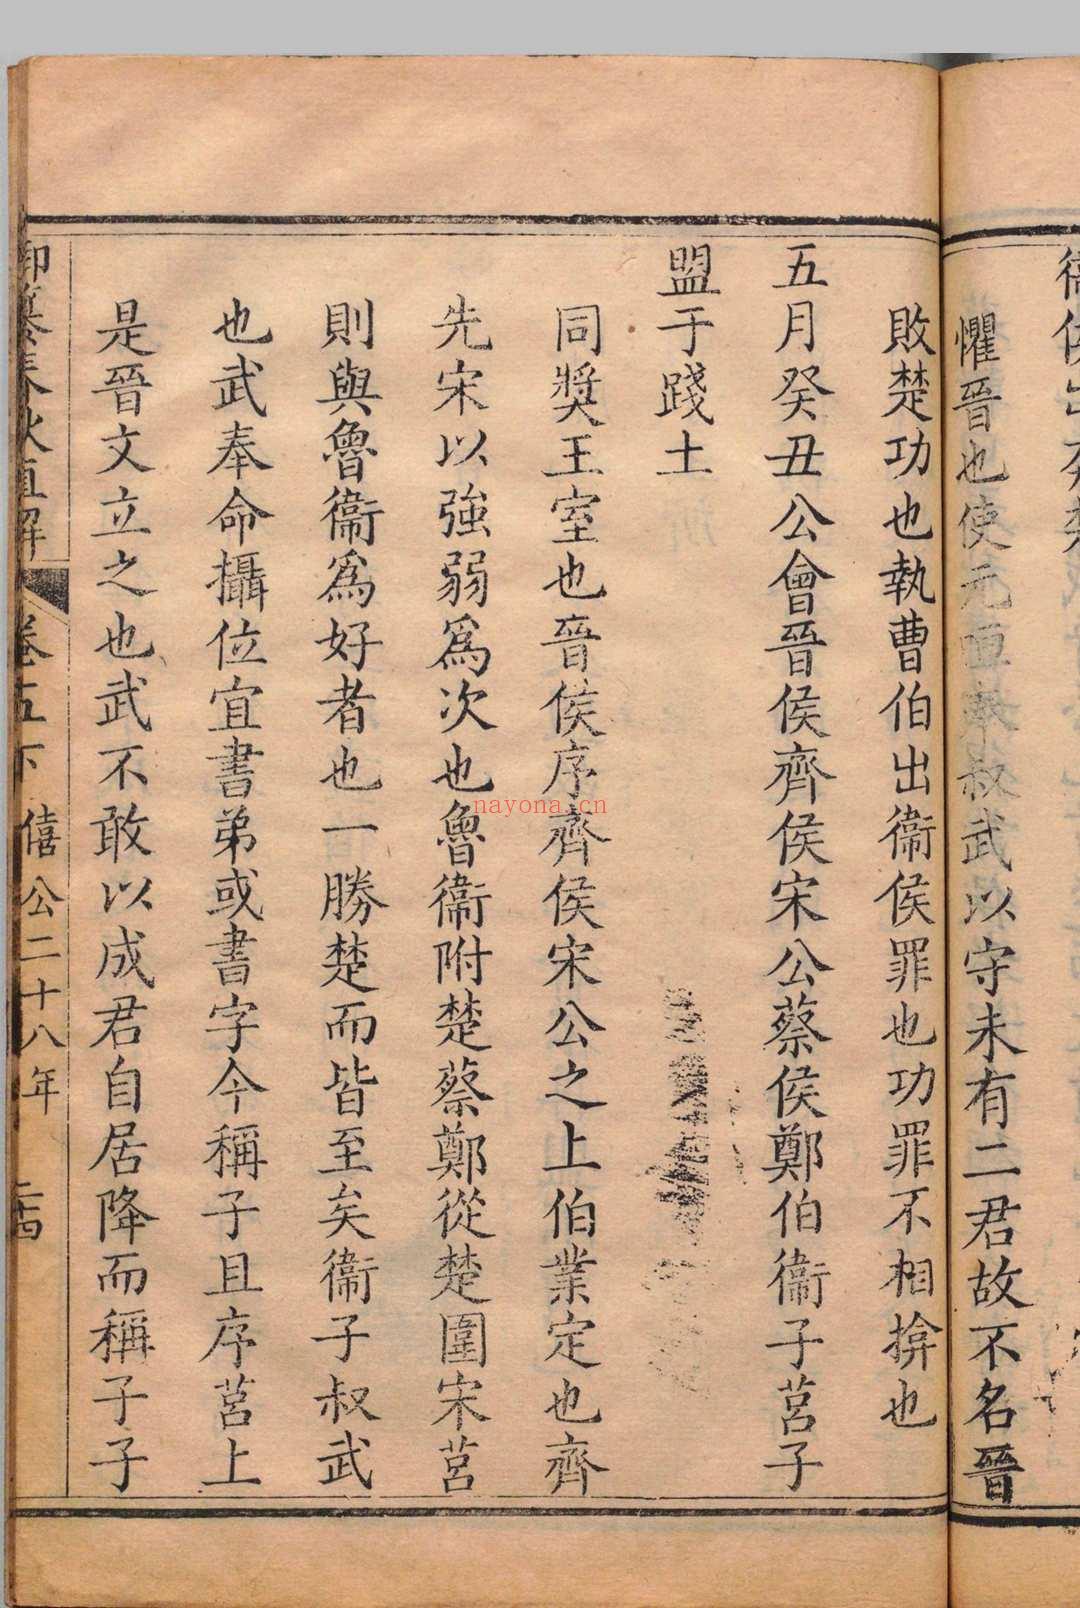 懼晉也使元咺奉叔武以守未有二君故不名晉
敗楚功也執曹伯出衞侯罪也功罪不相揜也
五月癸丑公會晉侯齊侯宋公蔡侯鄭伯衞子莒子
盟于踐土
同奬王室也晉侯序齊侯宋公之上伯業定也齊
先宋以強弱爲次也魯衞附楚蔡鄭從楚圍宋莒
則與魯衞爲好者也一勝楚而皆至矣衞子叔武
也武奉命攝位宜書弟或書字今稱子且序莒上
是晉文立之也武不敢以成君自居降而稱子子
御纂春秋直解 卷五下 僖公二十八年
nayona.cn